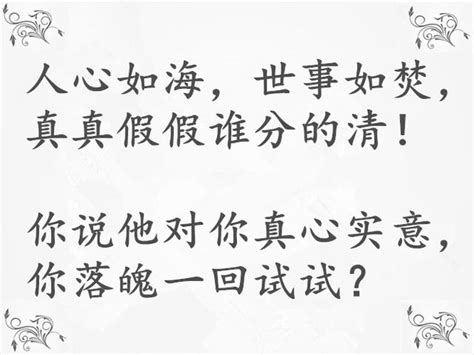 人心如海，世事如焚，
真真假假谁分的清！
你说他对你真心实意，
你落魄一回试试？